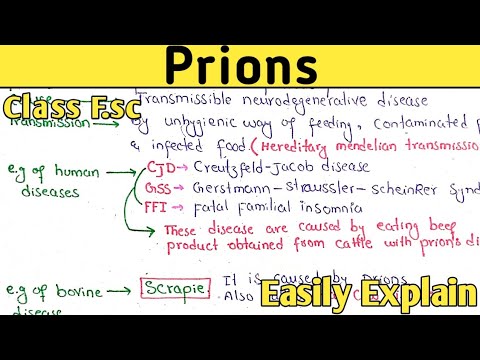 Prions
Transmissible neurodegenerative disease
Class F.sc
Transmission → By unhygienic way of feeding, Contaminated
& infected food. (Hereditary mendelian transmission
e.g of human → CJD → Creutzfeld-Jacob disease
diseases GSS → Gerstmann-straussler-scheinker Syn
FFI → Fatal Familial insomnia
→ These disease are caused by eating beef
product obtained from cattle with prion's di
e.g of bovine → Scrapie. It is caused by Prions
disease Also
Easily Explain